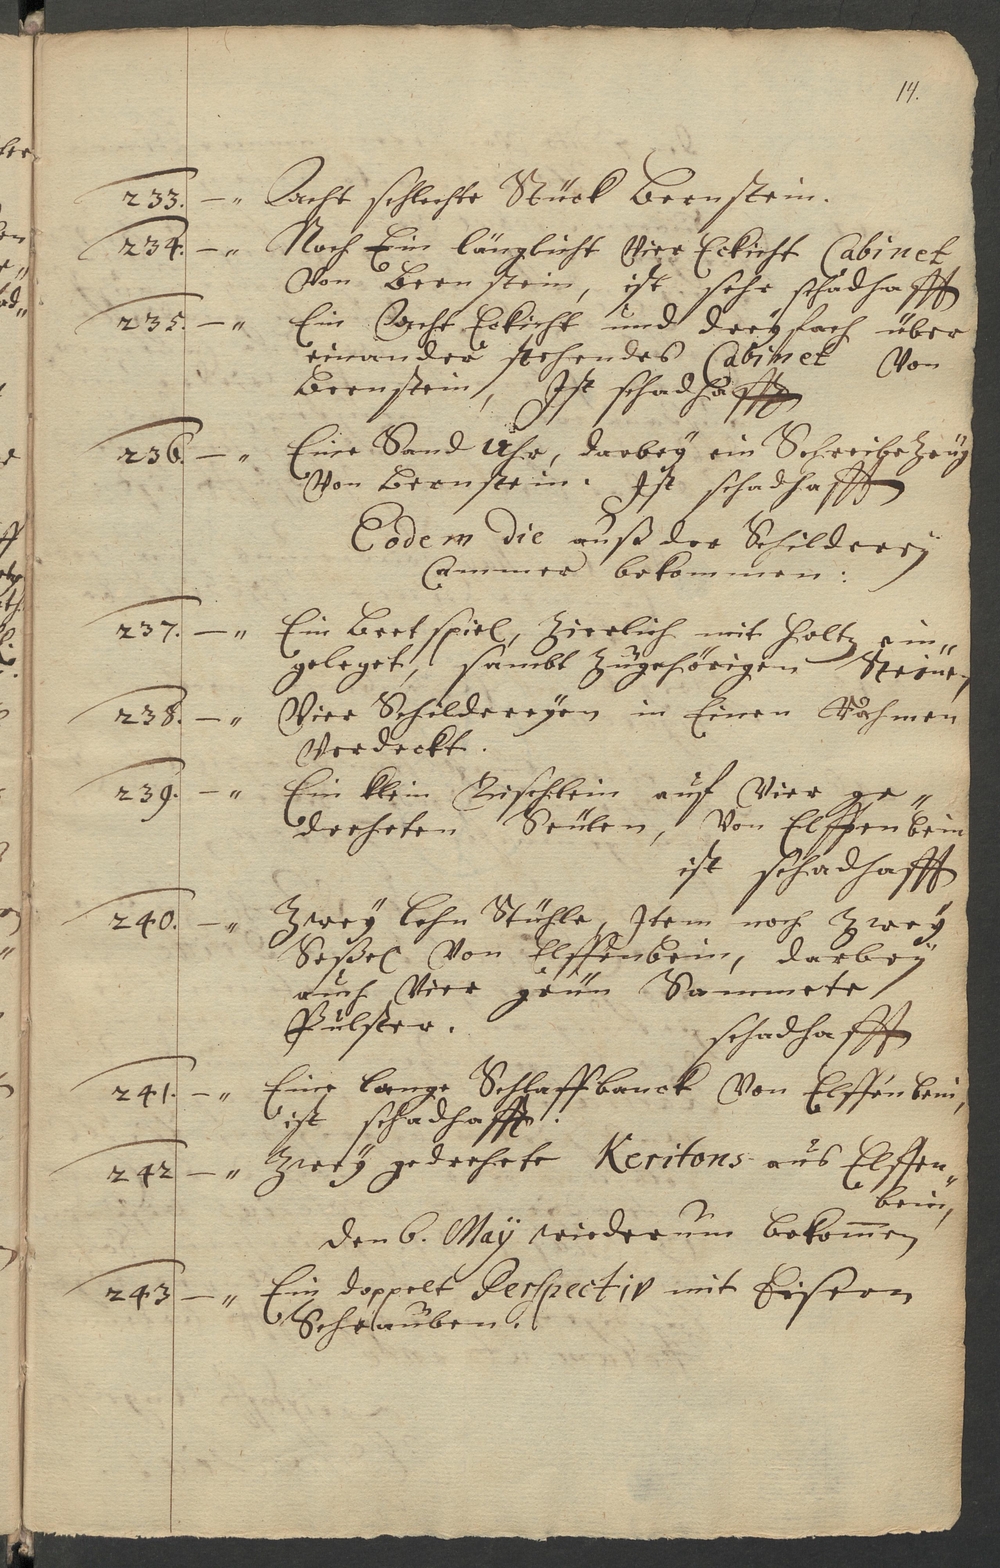 14.
233. — „ Acht schlechte Stück Bernstein.
234. — „ Noch Ein länglicht Vier Eckicht Cabinet
Von Bernstein, ist sehr schadhafft
235. — „ Ein Acht Eckicht und dreyfach über
einander stehendes Cabinet Von
Bernstein, Ist schadhafft
236. — „ Eine Sand Uhr, darbey ein Schreibezeug
Von Bernstein. Ist schadhafft
Eodem die auß der Schilderey
Cammer bekommen:
237. — „ Ein Bretspiel, Zierlich mit Holtz ein„
geleget, sambt Zugehörigen Steinen
238. — „ Vier Schildereyen in Einen Rahmen
Verdeckt.
239. — „ Ein klein Tischlein auf Vier ge„
dreheten Seulen, Von Elffenbein
ist schadhafft
240. — „ Zwey lehn Stühle, Item noch Zwey
Seßel Von Elffenbein, darbey
auch Vier grün Sammete
Pulster. schadhafft
241. — „ Eine lange Schlaffbanck Von Elffenbein,
ist schadhafft.
242 — „ Zwey gedrehete Keritons aus Elffen„
bein,
den 6. May wiederum bekommen
243 — „ Ein doppelt Perspectiv mit Eisern
Schrauben.